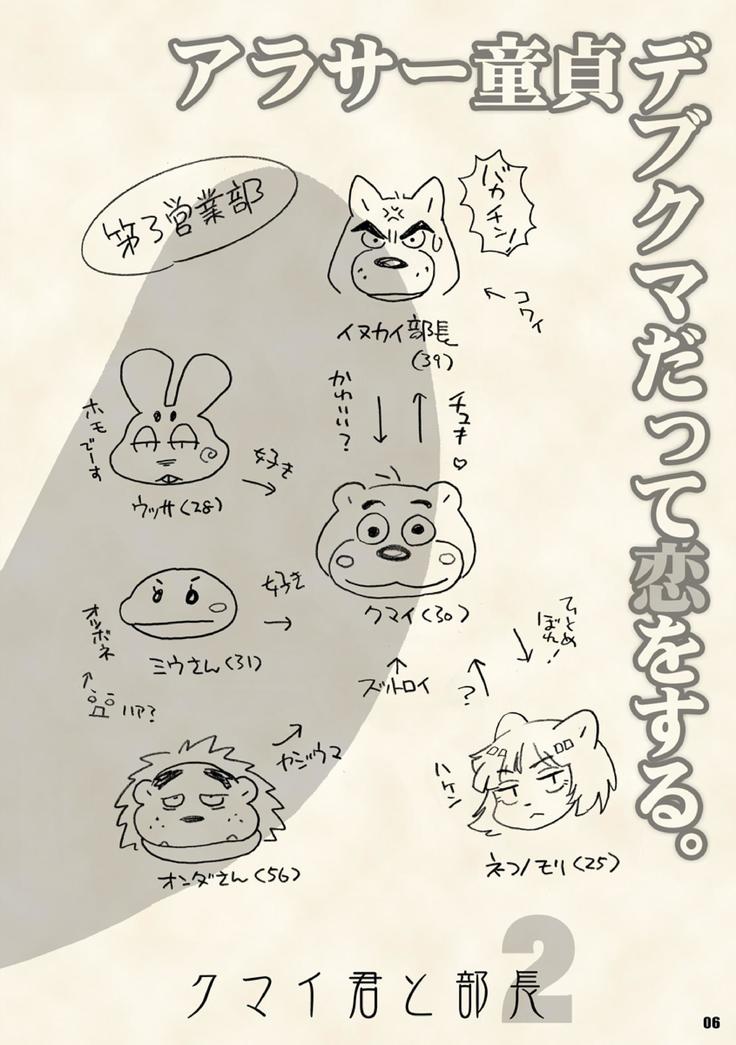 アラサー童貞デブクマだって恋をする。
第3営業部
バカチン!
コワイ
イヌカイ部長
(39)
かわいい?
チュキ♡
ホモでーす
好き
ウッサ(28)
クマイ(30)
好き
オツボネ
ミウさん(31)
ハア?
ひとめぼれ!
?
ヤジウマ
ハケン
オンダさん(56)
ネコノモリ(25)
2
クマイ君と部長
06